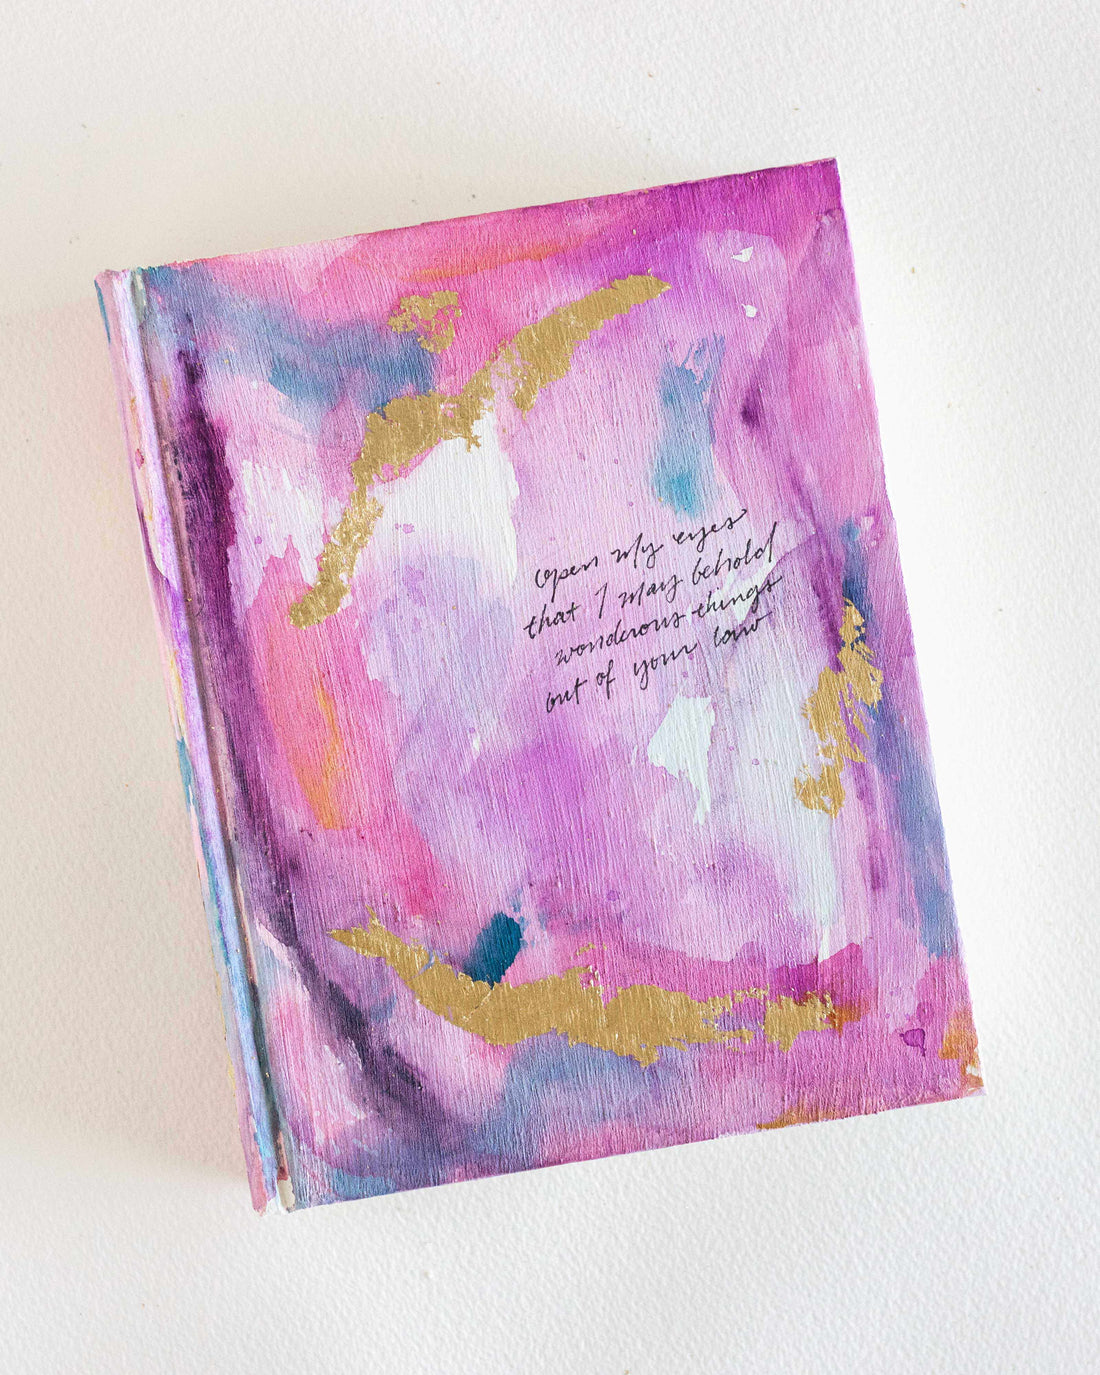 open my eyes
that I may behold
wonderous things
out of your law